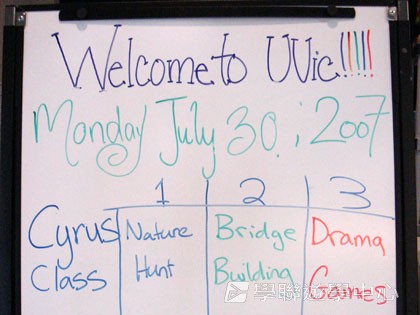 Welcome to UVic!!!!!!
Monday July 30, 2007
1 2 3
Cyrus Class
Nature Hunt
Bridge Building
Drama Games
學聯遊學中心